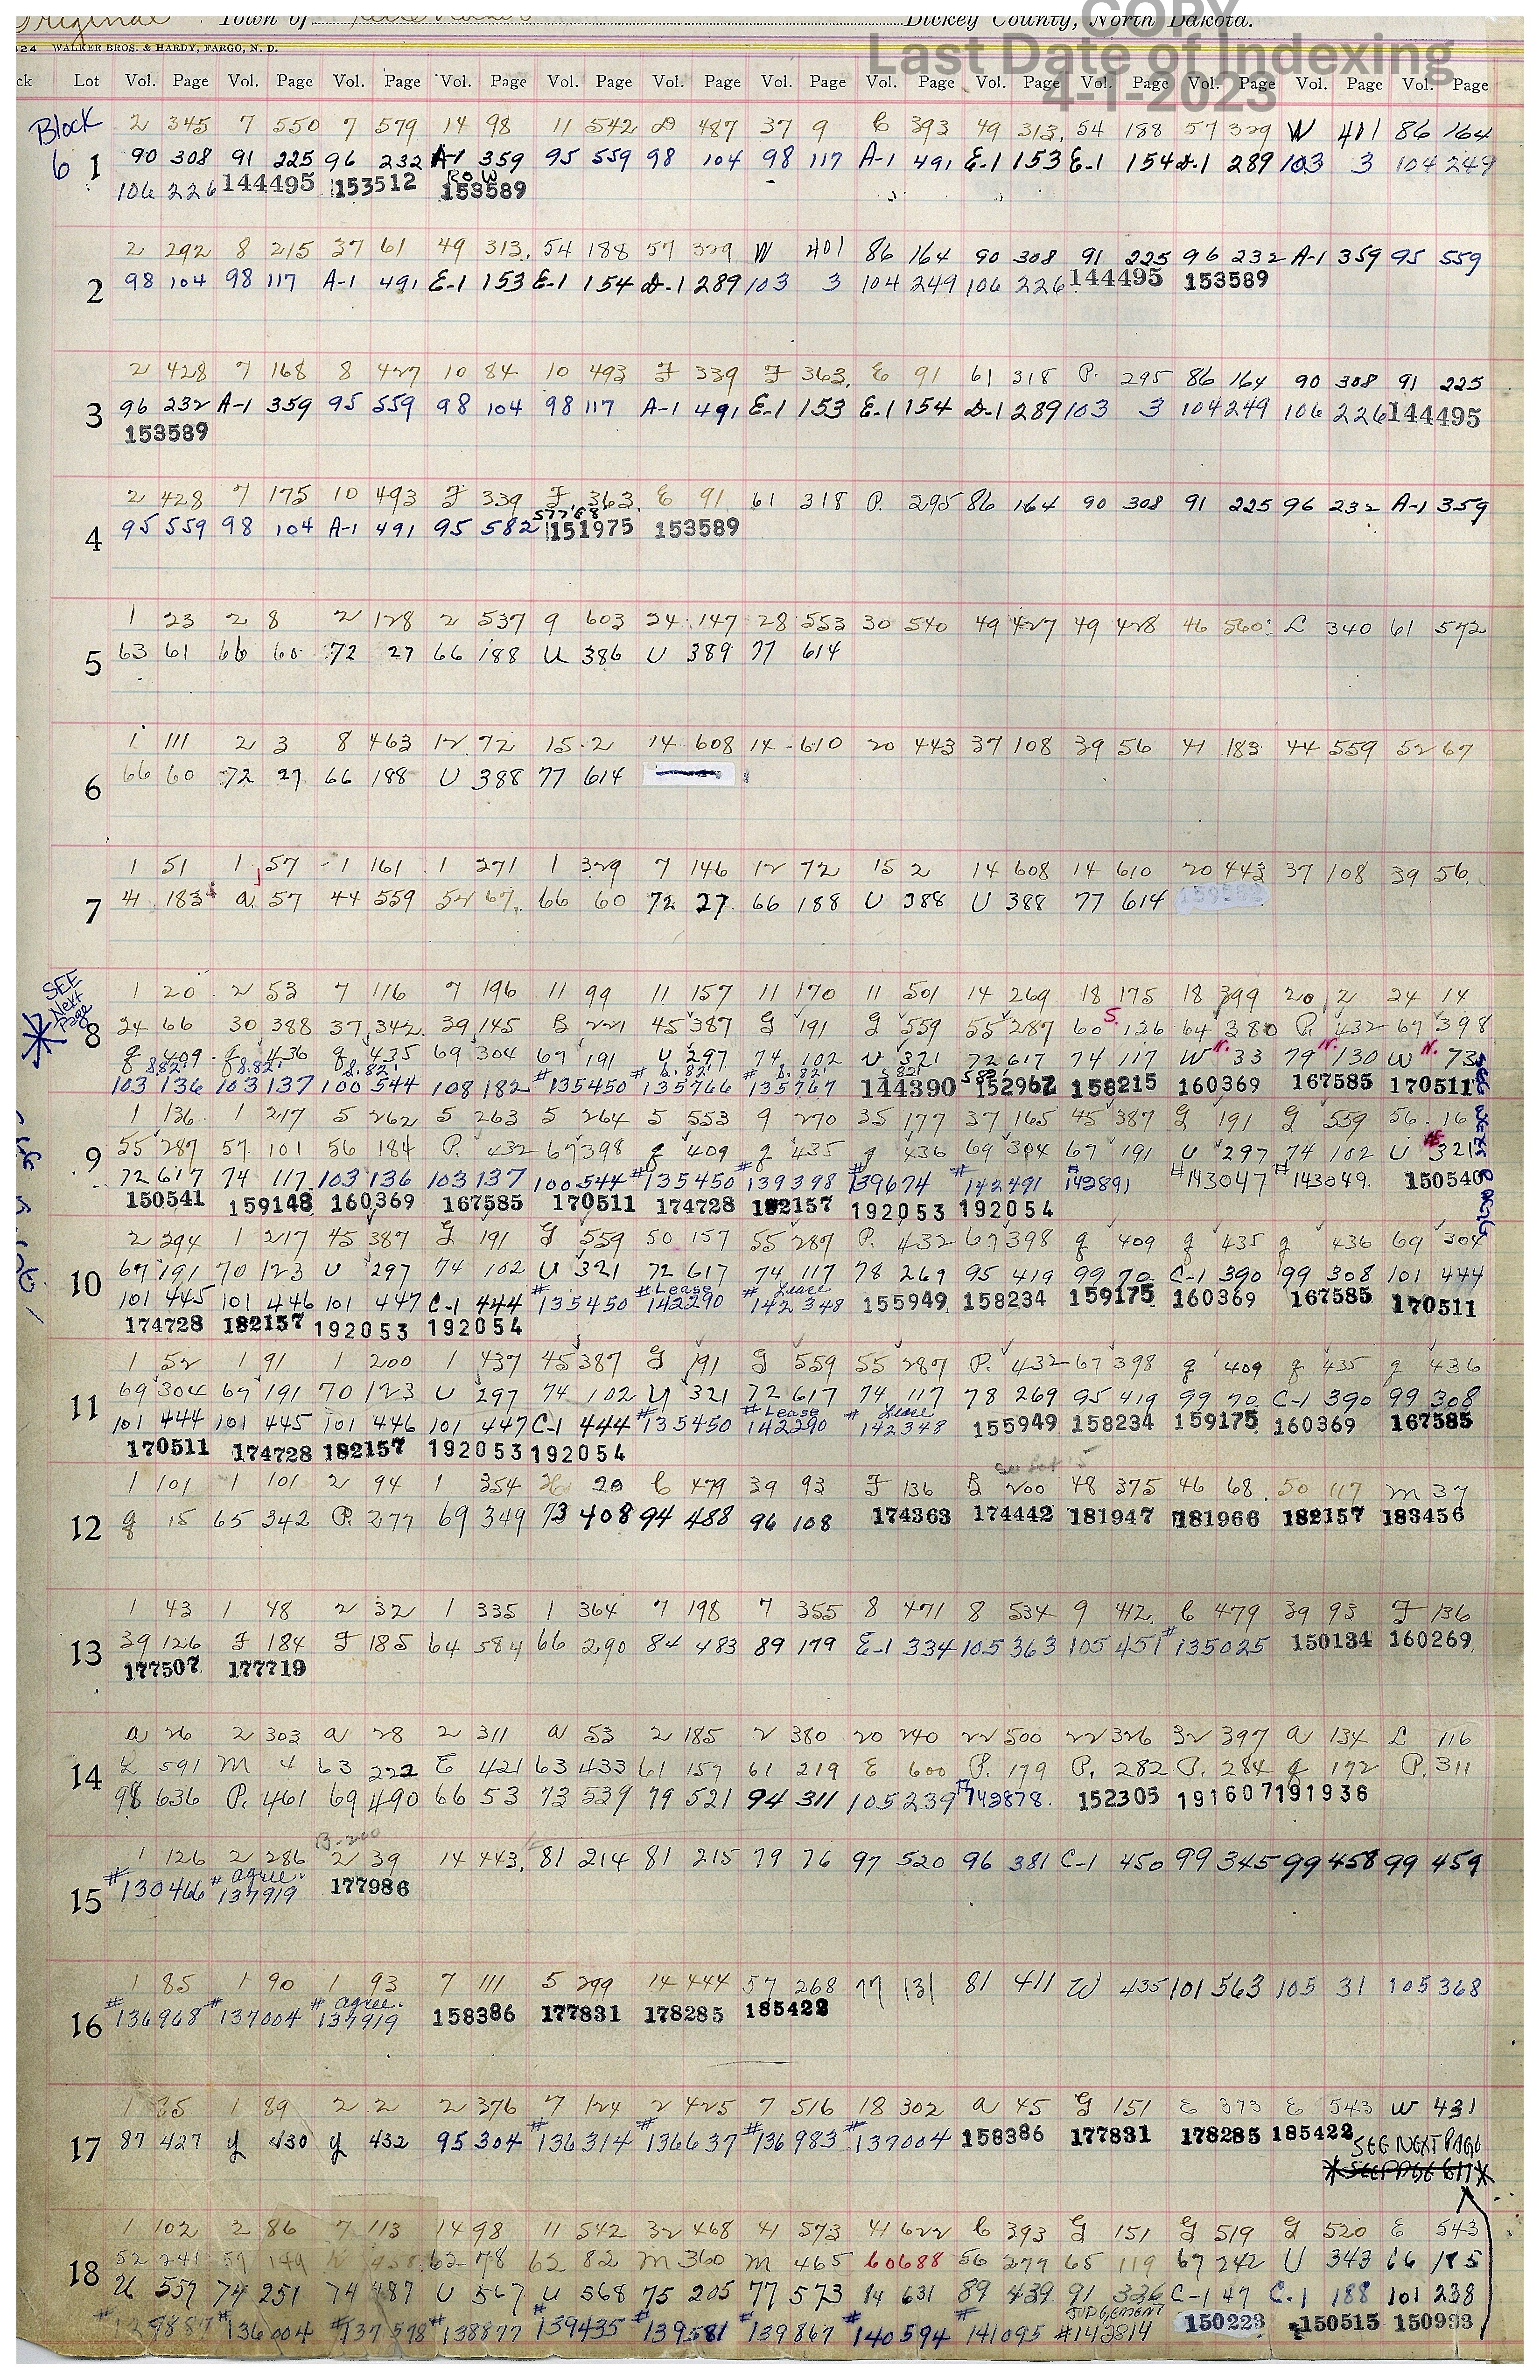 Original Town of Dickey County, North Dakota.
COPY
Last Date of Indexing
4-1-2023
324 WALKER BROS. & HARDY, FARGO, N. D.
ck Lot Vol. Page Vol. Page Vol. Page Vol. Page Vol. Page Vol. Page Vol. Page Vol. Page Vol. Page Vol. Page Vol. Page Vol. Page Vol. Page
Block 6
1
2 345 7 550 7 579 14 98 11 542 D 487 37 9 C 393 49 313 54 188 57 329 W 401 86 164
90 308 91 225 96 232 A-1 359 95 559 98 104 98 117 A-1 491 E-1 153 E-1 154 D-1 289 103 3 104 249
ROW
106 226 144495 153512 153589
2
2 292 8 215 37 61 49 313 54 188 57 329 W 401 86 164 90 308 91 225 96 232 A-1 359 95 559
98 104 98 117 A-1 491 E-1 153 E-1 154 D-1 289 103 3 104 249 106 226 144495 153589
3
2 428 7 168 8 427 10 84 10 493 F 339 F 363 E 91 61 318 P. 295 86 164 90 308 91 225
96 232 A-1 359 95 559 98 104 98 117 A-1 491 E-1 153 E-1 154 D-1 289 103 3 104 249 106 226 144495
153589
4
2 428 7 175 10 493 F 339 F 363 E 91 61 318 P. 295 86 164 90 308 91 225 96 232 A-1 359
95 559 98 104 A-1 491 95 582 151975 153589
5
1 23 2 8 2 128 2 537 9 603 24 147 28 553 30 540 49 427 49 428 46 560 L 340 61 572
63 61 66 60 72 27 66 188 U 386 U 389 77 614
6
1 111 2 3 8 463 12 72 15 2 14 608 14 610 20 443 37 108 39 56 41 183 44 559 52 67
66 60 72 27 66 188 U 388 77 614
7
1 51 1 57 1 161 1 271 1 329 7 146 12 72 15 2 14 608 14 610 20 443 37 108 39 56
41 183 a 57 44 559 52 67 66 60 72 27 66 188 U 388 U 388 77 614
SEE Next Page
8
1 20 2 53 7 116 7 196 11 99 11 157 11 170 11 501 14 269 18 175 18 399 20 2 24 14
24 66 30 388 37 342 39 145 B 221 45 387 G 191 G 559 55 287 60 S. 126 64 380 P. 432 67 398
g 409 g 436 g 435 69 304 67 191 U 297 74 102 U 321 72 617 74 117 W N. 33 79 N. 130 W N. 73
103 136 103 137 100 544 108 182 #135450 #135766 #135767 144390 152967 158215 160369 167585 170511
9
1 136 1 217 5 262 5 263 5 264 5 553 9 270 35 177 37 165 45 387 G 191 G 559 56 16
55 287 57 101 56 184 P. 432 67 398 g 409 g 435 g 436 69 304 67 191 U 297 74 102 U 321
72 617 74 117 103 136 103 137 100 544 #135450 #139398 #139674 #142491 #142891 #143047 #143049 150540
150541 159148 160369 167585 170511 174728 182157 192053 192054
10
2 294 1 217 45 387 G 191 G 559 50 157 55 287 P. 432 67 398 g 409 g 435 g 436 69 304
67 191 70 123 U 297 74 102 U 321 72 617 74 117 78 269 95 419 99 70 C-1 390 99 308 101 444
#Lease Lease
101 445 101 446 101 447 C-1 444 #135450 142290 #142348 155949 158234 159175 160369 167585 170511
174728 182157 192053 192054
11
1 52 1 91 1 200 1 437 45 387 G 191 G 559 55 287 P. 432 67 398 g 409 g 435 g 436
69 304 67 191 70 123 U 297 74 102 U 321 72 617 74 117 78 269 95 419 99 70 C-1 390 99 308
#Lease Lease
101 444 101 445 101 446 101 447 C-1 444 #135450 142290 #142348 155949 158234 159175 160369 167585
170511 174728 182157 192053 192054
12
1 101 1 101 2 94 1 354 20 C 479 39 93 F 136 B 200 48 375 46 68 50 117 M 37
g 15 65 342 P. 277 69 349 73 408 94 488 96 108 174363 174442 181947 181966 182157 183456
13
1 43 1 48 2 32 1 335 1 364 7 198 7 355 8 471 8 534 9 412 C 479 39 93 F 136
39 126 F 184 F 185 64 584 66 290 84 483 89 179 E-1 334 105 363 105 451 #135025 150134 160269
177507 177719
14
a 26 2 303 a 28 2 311 a 53 2 185 2 380 20 240 22 500 22 326 32 397 a 134 L 116
L 591 M 4 63 222 E 421 63 433 61 157 61 219 E 600 P. 179 P. 282 P. 284 g 172 P. 311
98 636 P. 461 69 490 66 53 73 539 79 521 94 311 105 239 #142878 152305 191607 191936
B-200
15
1 126 2 286 2 39 14 443 81 214 81 215 79 76 97 520 96 381 C-1 450 99 345 99 458 99 459
agree.
#130466 #137919 177986
16
1 85 1 90 1 93 7 111 5 299 14 444 57 268 77 131 81 411 W 435 101 563 105 31 105 368
agree.
#136968 #137004 #137919 158386 177831 178285 185422
17
1 35 1 89 2 2 2 376 7 124 2 425 7 516 18 302 a 45 G 151 E 373 E 543 W 431
87 427 y 430 y 432 95 304 #136314 #136637 #136983 #137004 158386 177831 178285 185422
SEE NEXT PAGE
18
1 102 2 86 7 113 14 98 11 542 32 468 41 573 41 622 C 393 G 151 G 519 G 520 E 543
52 241 62 78 62 82 M 360 M 465 60 688 56 277 65 119 67 242 U 343 66 185
U 557 74 251 74 487 U 567 U 568 75 205 77 573 84 631 89 439 91 336 C-1 47 C-1 188 101 238
JUDGEMENT
#136004 #137578 #138877 #139435 #139581 #139867 #140594 #141095 #142814 150223 150515 150933